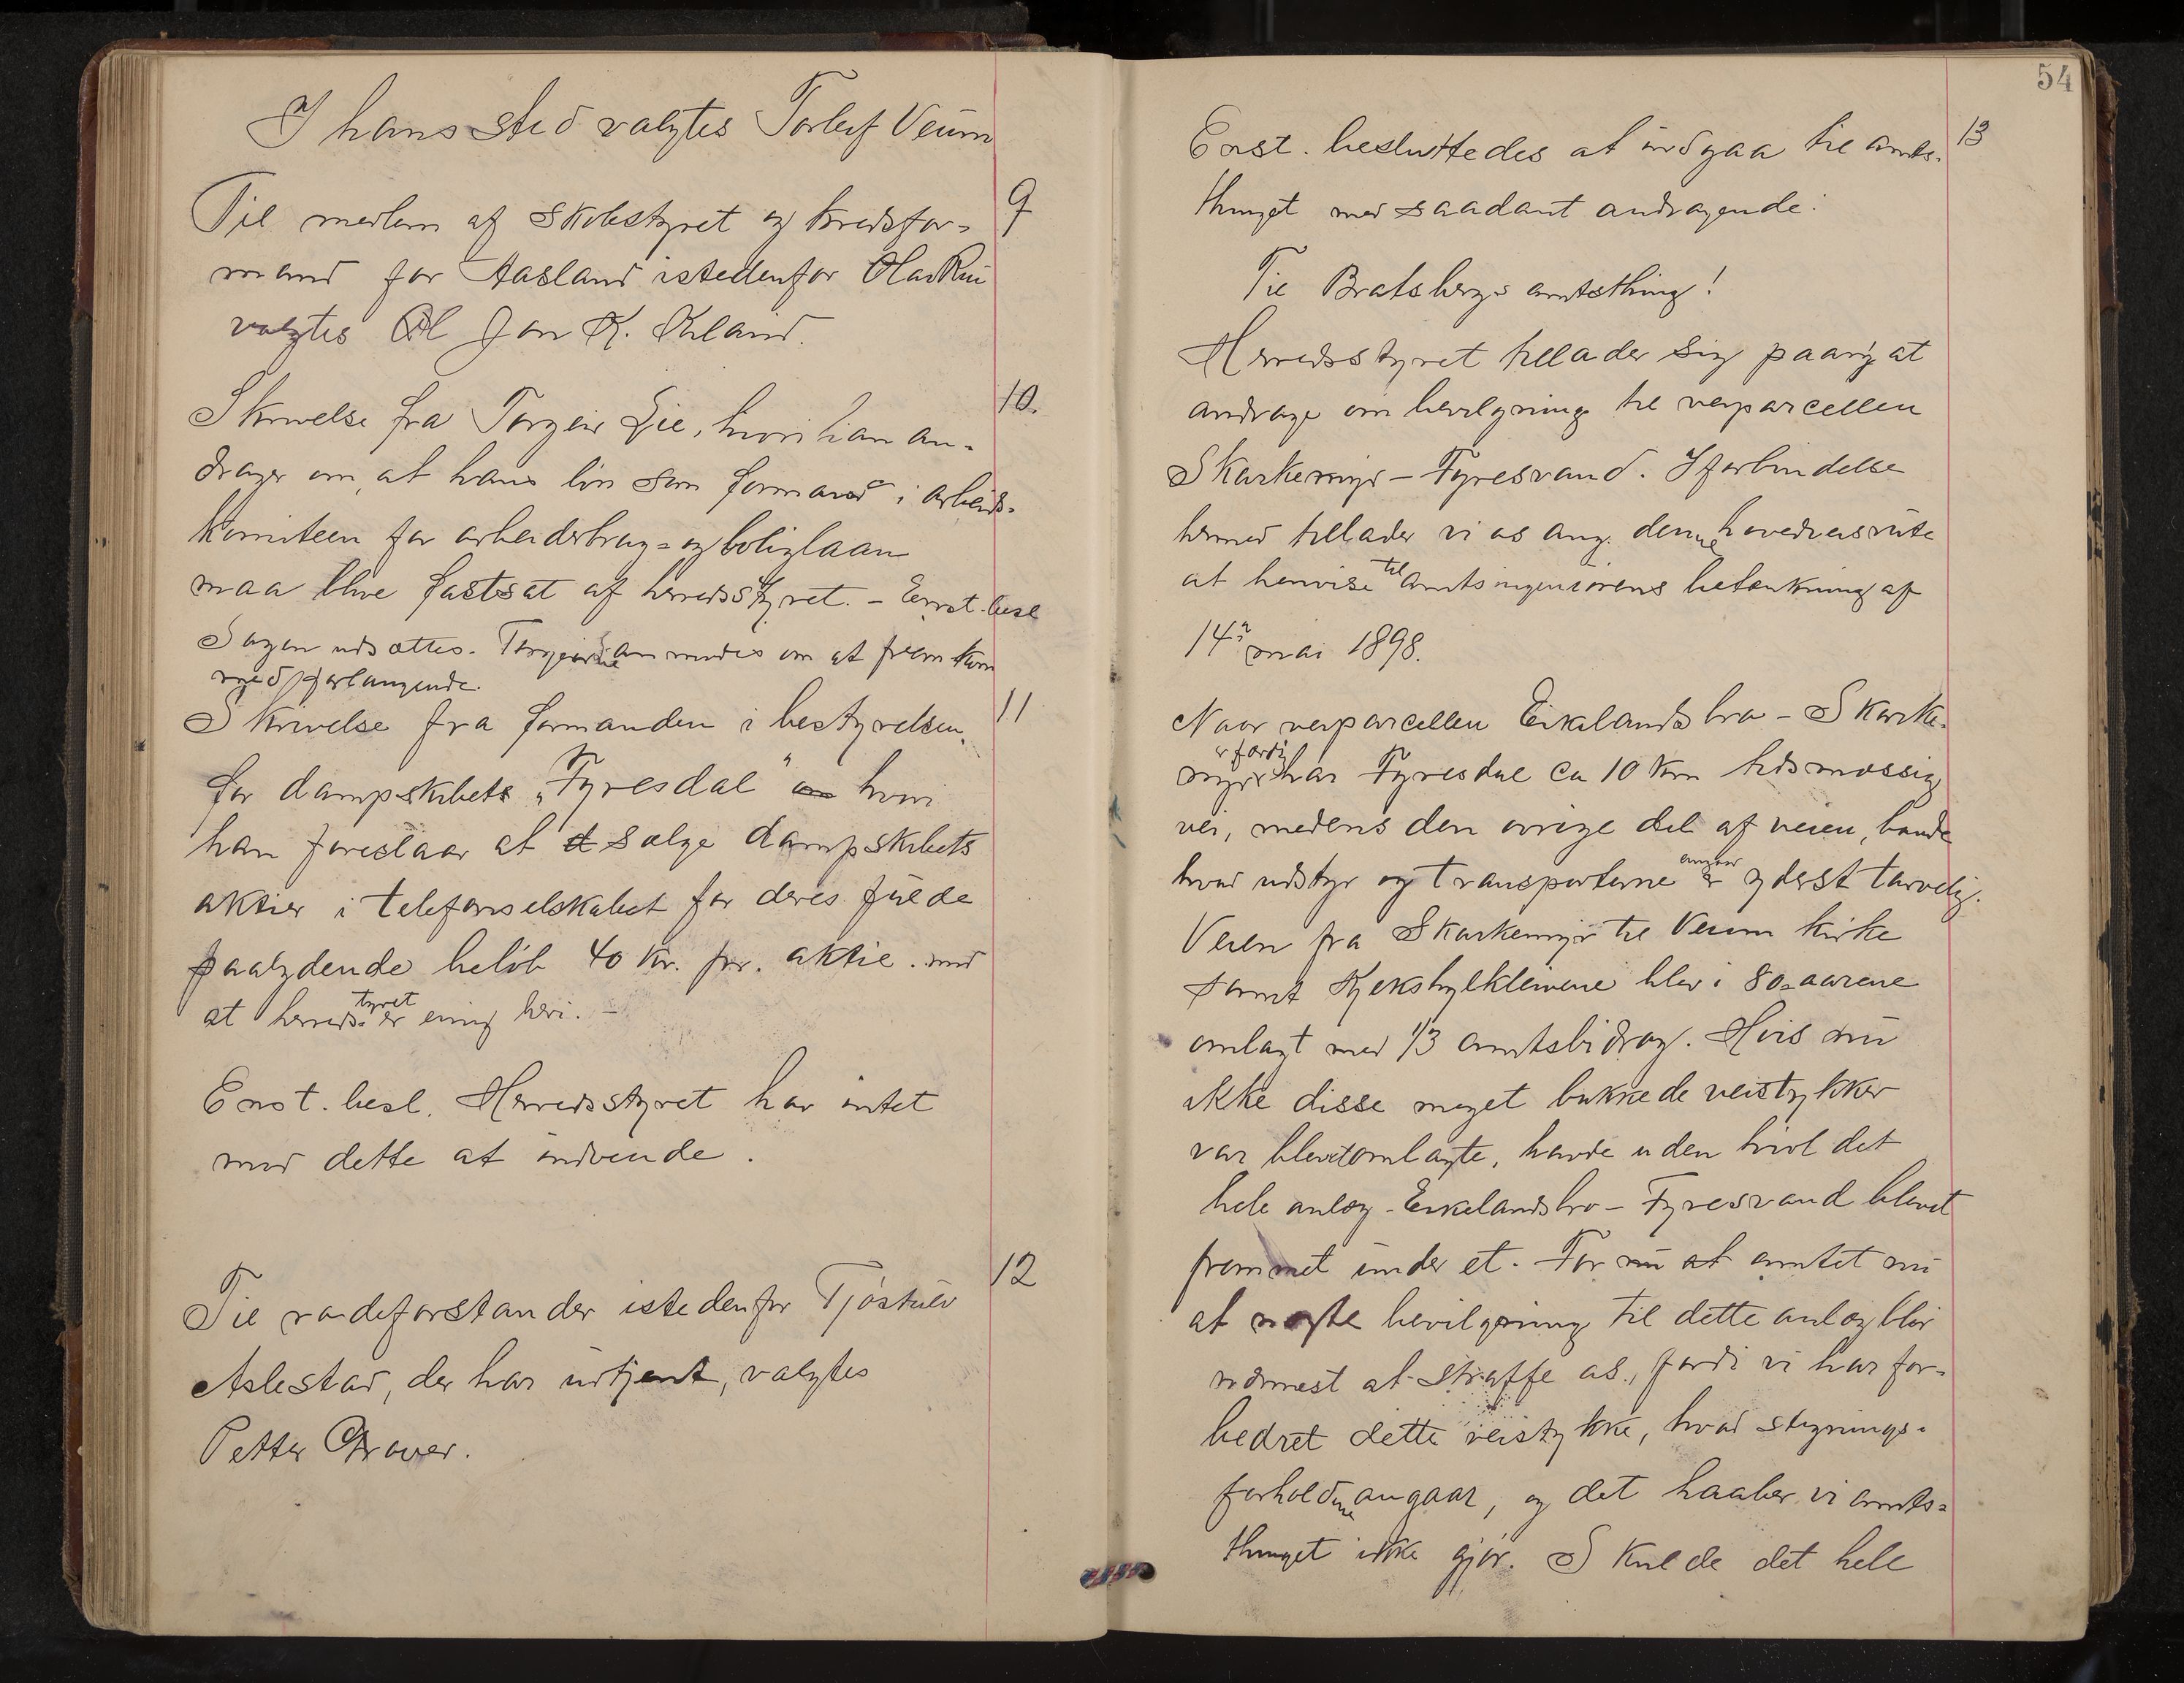 I hans sted valgtes Torleif Veum
9
Til medlem af skolestyret og kredsfor-
mand for Aasland istedenfor Olav Rui
valgtes Jon K. Øhland.
10.
Skrivelse fra Torgeir Lie, hvori han an-
drager om, at hans løn som formand i arbeids-
komiteen for arbeiderbrug- og boliglaan
maa blive fastsat af herredsstyret. - Enst. besl
Sagen udsættes. Torgeir Lie anmodes om at fremkom
med forlangende.
11
Skrivelse fra formanden i bestyrelsen
for dampskibets „Tyresdal" om hvori
han foreslaar at sælge dampskibets
aktier i telefonselskabet for deres fulde
paalydende beløb 40 kr. pr. aktie. med
at herredstyret er enig heri. -
Enst. besl. Herredsstyret har intet
med dette at indvende.
12
Til rodeforstander istedenfor Tjøstulv
Aslestad, der har udtjent, valgtes
Petter Graver.
54
13
Enst. besluttedes at indgaa til amts-
thinget med saadant andragende:
Til Bratsbergs amtsthing!
Herredsstyret tillader sig paany at
andrage om bevilgning til veiparcellen
Skarkemyr - Tyresvand. I forbindelse
hermed tillader vi os ang. denne hovedveisrute
at henvise til amtsingeniørens betænkning af
14de mai 1898.
Naar veiparcellen Eikelandsbro - Skarke-
myr er færdig har Tyresdal ca 10 km tidsmæssig
vei, medens den øvrige del af veien, baade
hvad udstyr og transporterne angaar er yderst tarvelig.
Veien fra Skarkemyr til Veum kirke
samt Kjekshylkleivene blev i 80-aarene
omlagt med 1/3 amtsbidrag. Hvis nu
ikke disse meget bakkede veistykker
var blevet omlagte, havde uden tvivl det
hele anlæg - Eikelandsbro - Tyresvand blevet
fremmet under et. For nu at amtet nu
at nægte bevilgning til dette anlæg blir
nærmest at straffe os, fordi vi har for-
bedret dette veistykke, hvad stignings-
forholdene angaar, og det haaber vi amts-
thinget ikke gjør. Skulde det hele